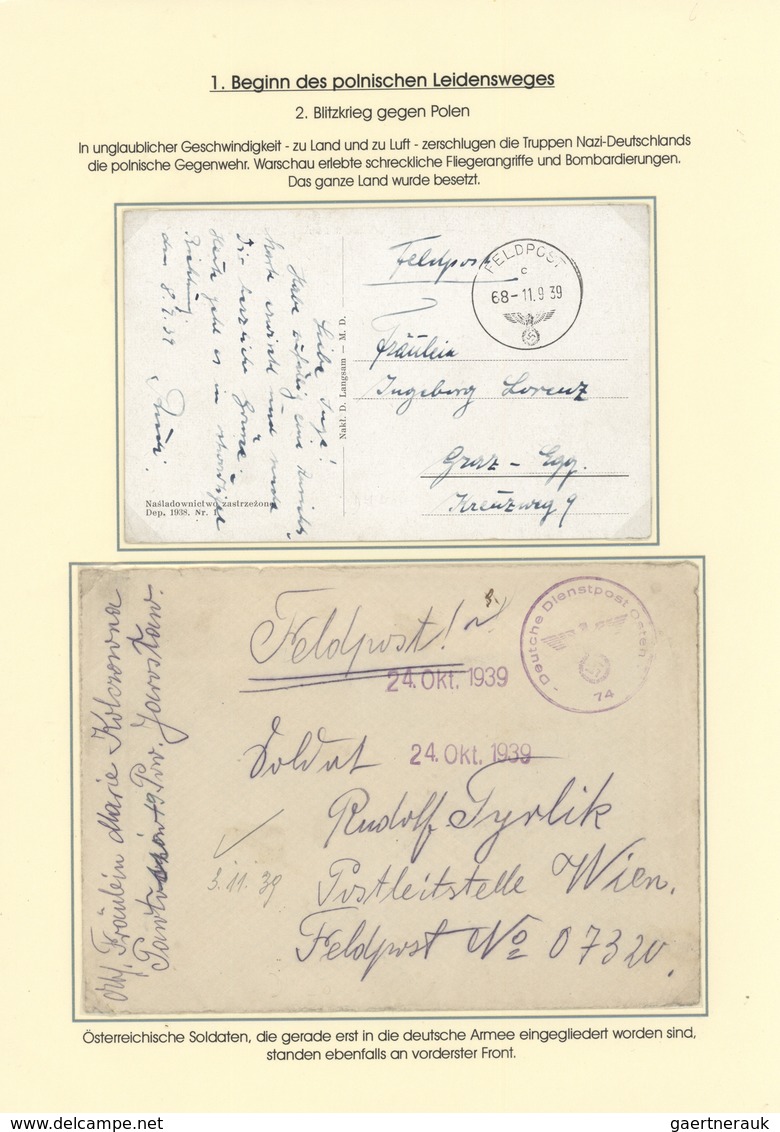 1. Beginn des polnischen Leidensweges
2. Blitzkrieg gegen Polen
In unglaublicher Geschwindigkeit - zu Land und zu Luft - zerschlugen die Truppen Nazi-Deutschlands
die polnische Gegenwehr. Warschau erlebte schreckliche Fliegerangriffe und Bombardierungen.
Das ganze Land wurde besetzt.
Liebe Inge!
Habe zufällig eine
Karte und
Dir herzliche Grüße.
Heute geht es in
Richtung
den 8.9.39
Nakł. D. Langsam — M. D.
Naśladownictwo zastrzeżone
Dep. 1938. Nr. 1
Feldpost
FELDPOST
c
68-11.9 39
Fräulein
Ingeborg Lorenz
Graz - Egg.
Kreuzweg 9
Feldpost!
24. Okt. 1939
Deutsche Dienstpost Osten
74
Soldat
24. Okt. 1939
Rudolf Tyrlik
Postleitstelle Wien.
Feldpost No 07320
3.11.39
Abs. Fräulein Marie
Pow. Jarosław.
Österreichische Soldaten, die gerade erst in die deutsche Armee eingegliedert worden sind,
standen ebenfalls an vorderster Front.
gaertnerauk